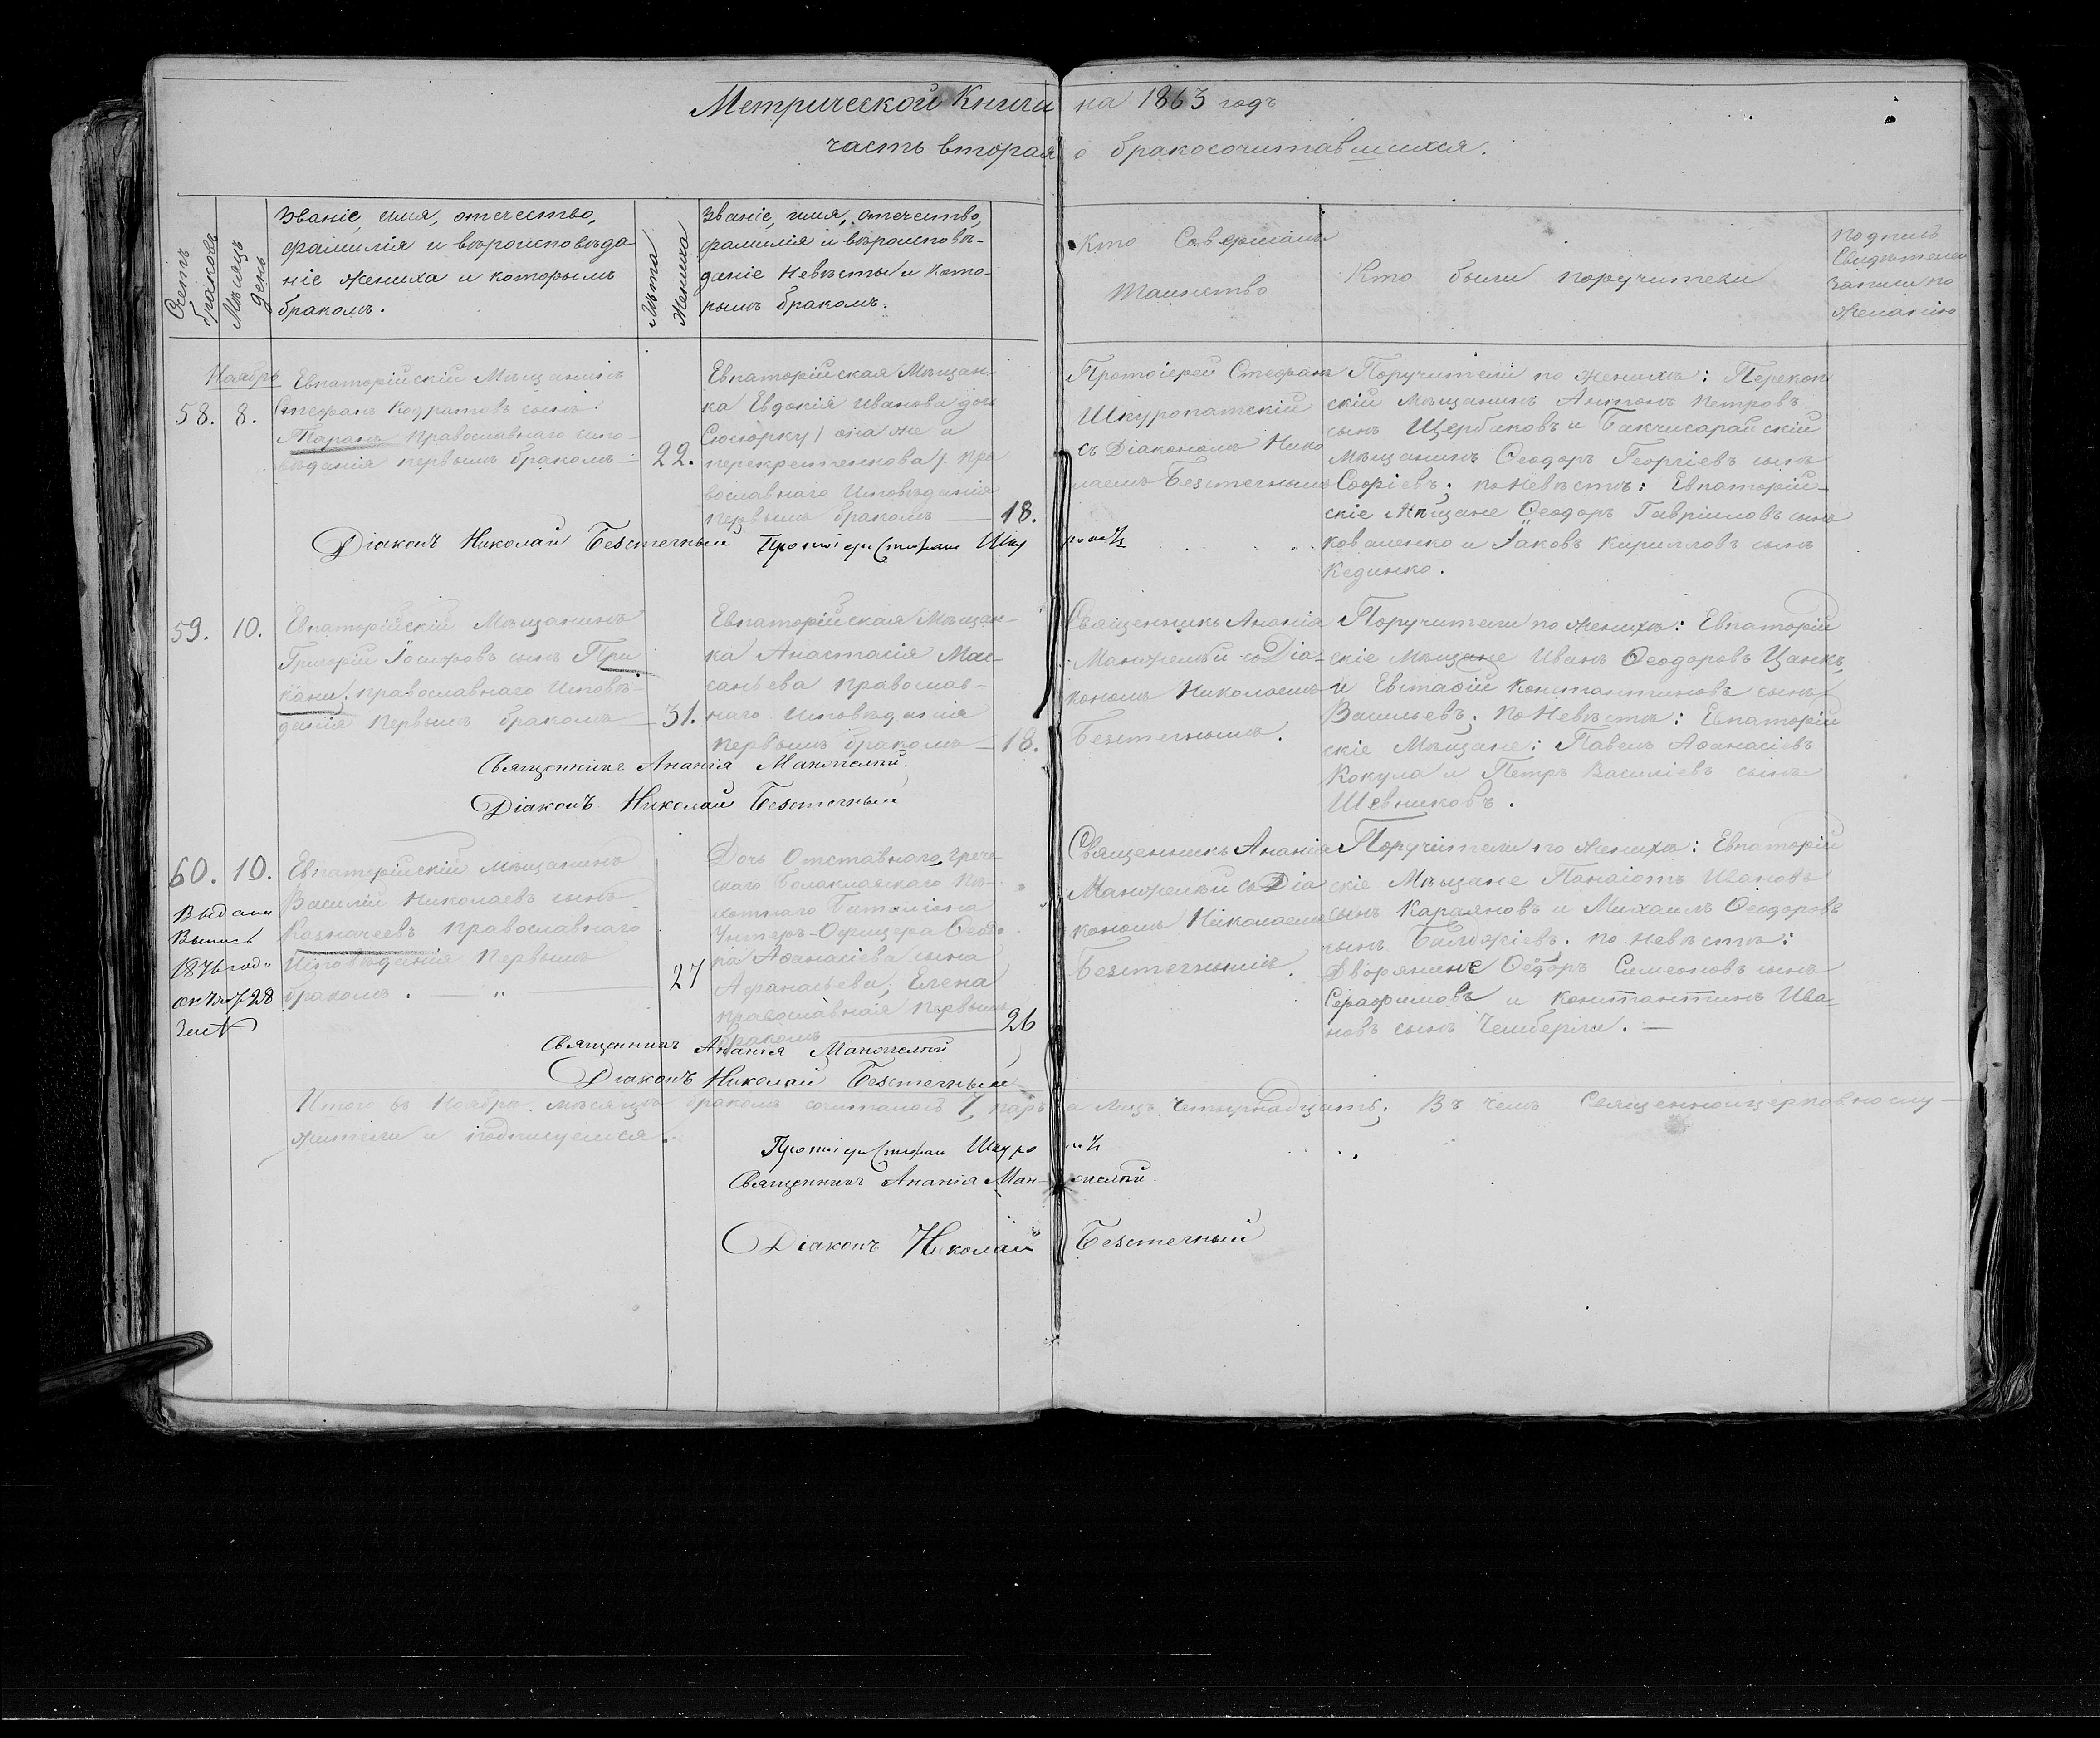 Метрической Книги на 1863 годъ
часть вторая о бракосочитавшихся.
Счетъ браковъ
Мѣсяцъ день
Званіе, имя, отечество,
фамилія и вѣроисповѣда
ніе жениха и которымъ
бракомъ.
Лѣта Жениха
Званіе, имя, отечество,
фамилія и вѣроисповѣ-
даніе Невѣсты и Кото-
рымъ бракомъ.
Кто Совершалъ
Таинство
Кто были поручители
Подпись
Свидѣтелей
Записи по
Желанію
Ноябрь
58. 8.
Евпаторійскій Мѣщанинъ
Стефанъ Кодратовъ сынъ
Таранъ Православнаго испо-
вѣданія первымъ бракомъ
22.
Евпаторійская Мѣщан-
ка Евдокія Иванова дочь
она же и
Пра
вославнаго Исповѣданія
первымъ бракомъ
18.
Протоіерей Стефанъ
Шкуропатскій
съ Діакономъ Нико
лаемъ Безстечнымъ
Поручители по женихѣ: Перекоп
скій мѣщанинъ Антонъ Петровъ
сынъ Щербаковъ и Бакчисарайскій
Мѣщанинъ Ѳеодоръ Георгіевъ сынъ
Софіевъ; по Невѣстѣ: Евпаторій-
скіе Мѣщане Ѳеодоръ Гавріиловъ сынъ
Коваленко и Іаковъ Кирилловъ сынъ
Кединко.
Діаконъ Николай Безстечный Протоіер Стефанъ Шкуропатс
59. 10.
Евпаторійскій Мѣщанинъ
Григорій Іосифовъ сынъ Три
кани, православнаго Исповѣ-
данія Первымъ бракомъ
31.
Евпаторійская Мѣщан-
ка Анастасія Мас-
саньева Православ-
наго Исповѣданія
первымъ бракомъ
18.
Священникъ Ананія
Манжелѣй со Діа-
кономъ Николаемъ
Безстечнымъ.
Поручители по женихѣ: Евпаторій
скіе Мѣщане Иванъ Ѳеодоровъ Цанкъ,
и Евстафій Константиновъ сынъ
Васильевъ; по Невѣстѣ: Евпаторій
скіе Мѣщане: Павелъ Аѳанасіевъ
Кокула и Петръ Василіевъ сынъ
Шевниковъ.
Священникъ Ананія Манжелѣй.
Діаконъ Николай Безстечный
60. 10.
Выдана
Выпись
1876 года
Евпаторійскій мѣщанинъ
Василій Николаевъ сынъ
Казначеевъ православнаго
Исповѣданія Первымъ
бракомъ. — „ —
27
Дочь Отставнаго Грече-
скаго Балаклавскаго Пѣ-
хотнаго Баталіона
Унтеръ-Офицера Ѳеодо
ра Аѳанасіева сына
Афанасьева, Елена
православная Первымъ
бракомъ
26
Священникъ Ананія
Манжелѣй со Діа
кономъ Николаемъ
Безстечнымъ.
Поручители по Жениха: Евпаторій
скіе Мѣщане Панаіотъ Ивановъ
сынъ Караяновъ и Михаилъ Ѳеодоровъ
сынъ Балджіевъ. по невѣстѣ:
Дворянине Ѳедоръ Симеоновъ сынъ
Серафимовъ и Константинъ Ива-
новъ сынъ Чемберли. —
Священникъ Ананія Манжелѣй
Діаконъ Николай Безстечный
Итого въ Ноябрѣ мѣсяцѣ бракомъ сочиталось 7, паръ а лицъ, Четырнадцать; Въ чемъ Священноицерковнослу-
жители и подписуемся.
Протоіер Стефанъ Шкуропатс
Священникъ Ананія Манжелѣй.
Діаконъ Николай Безстечный